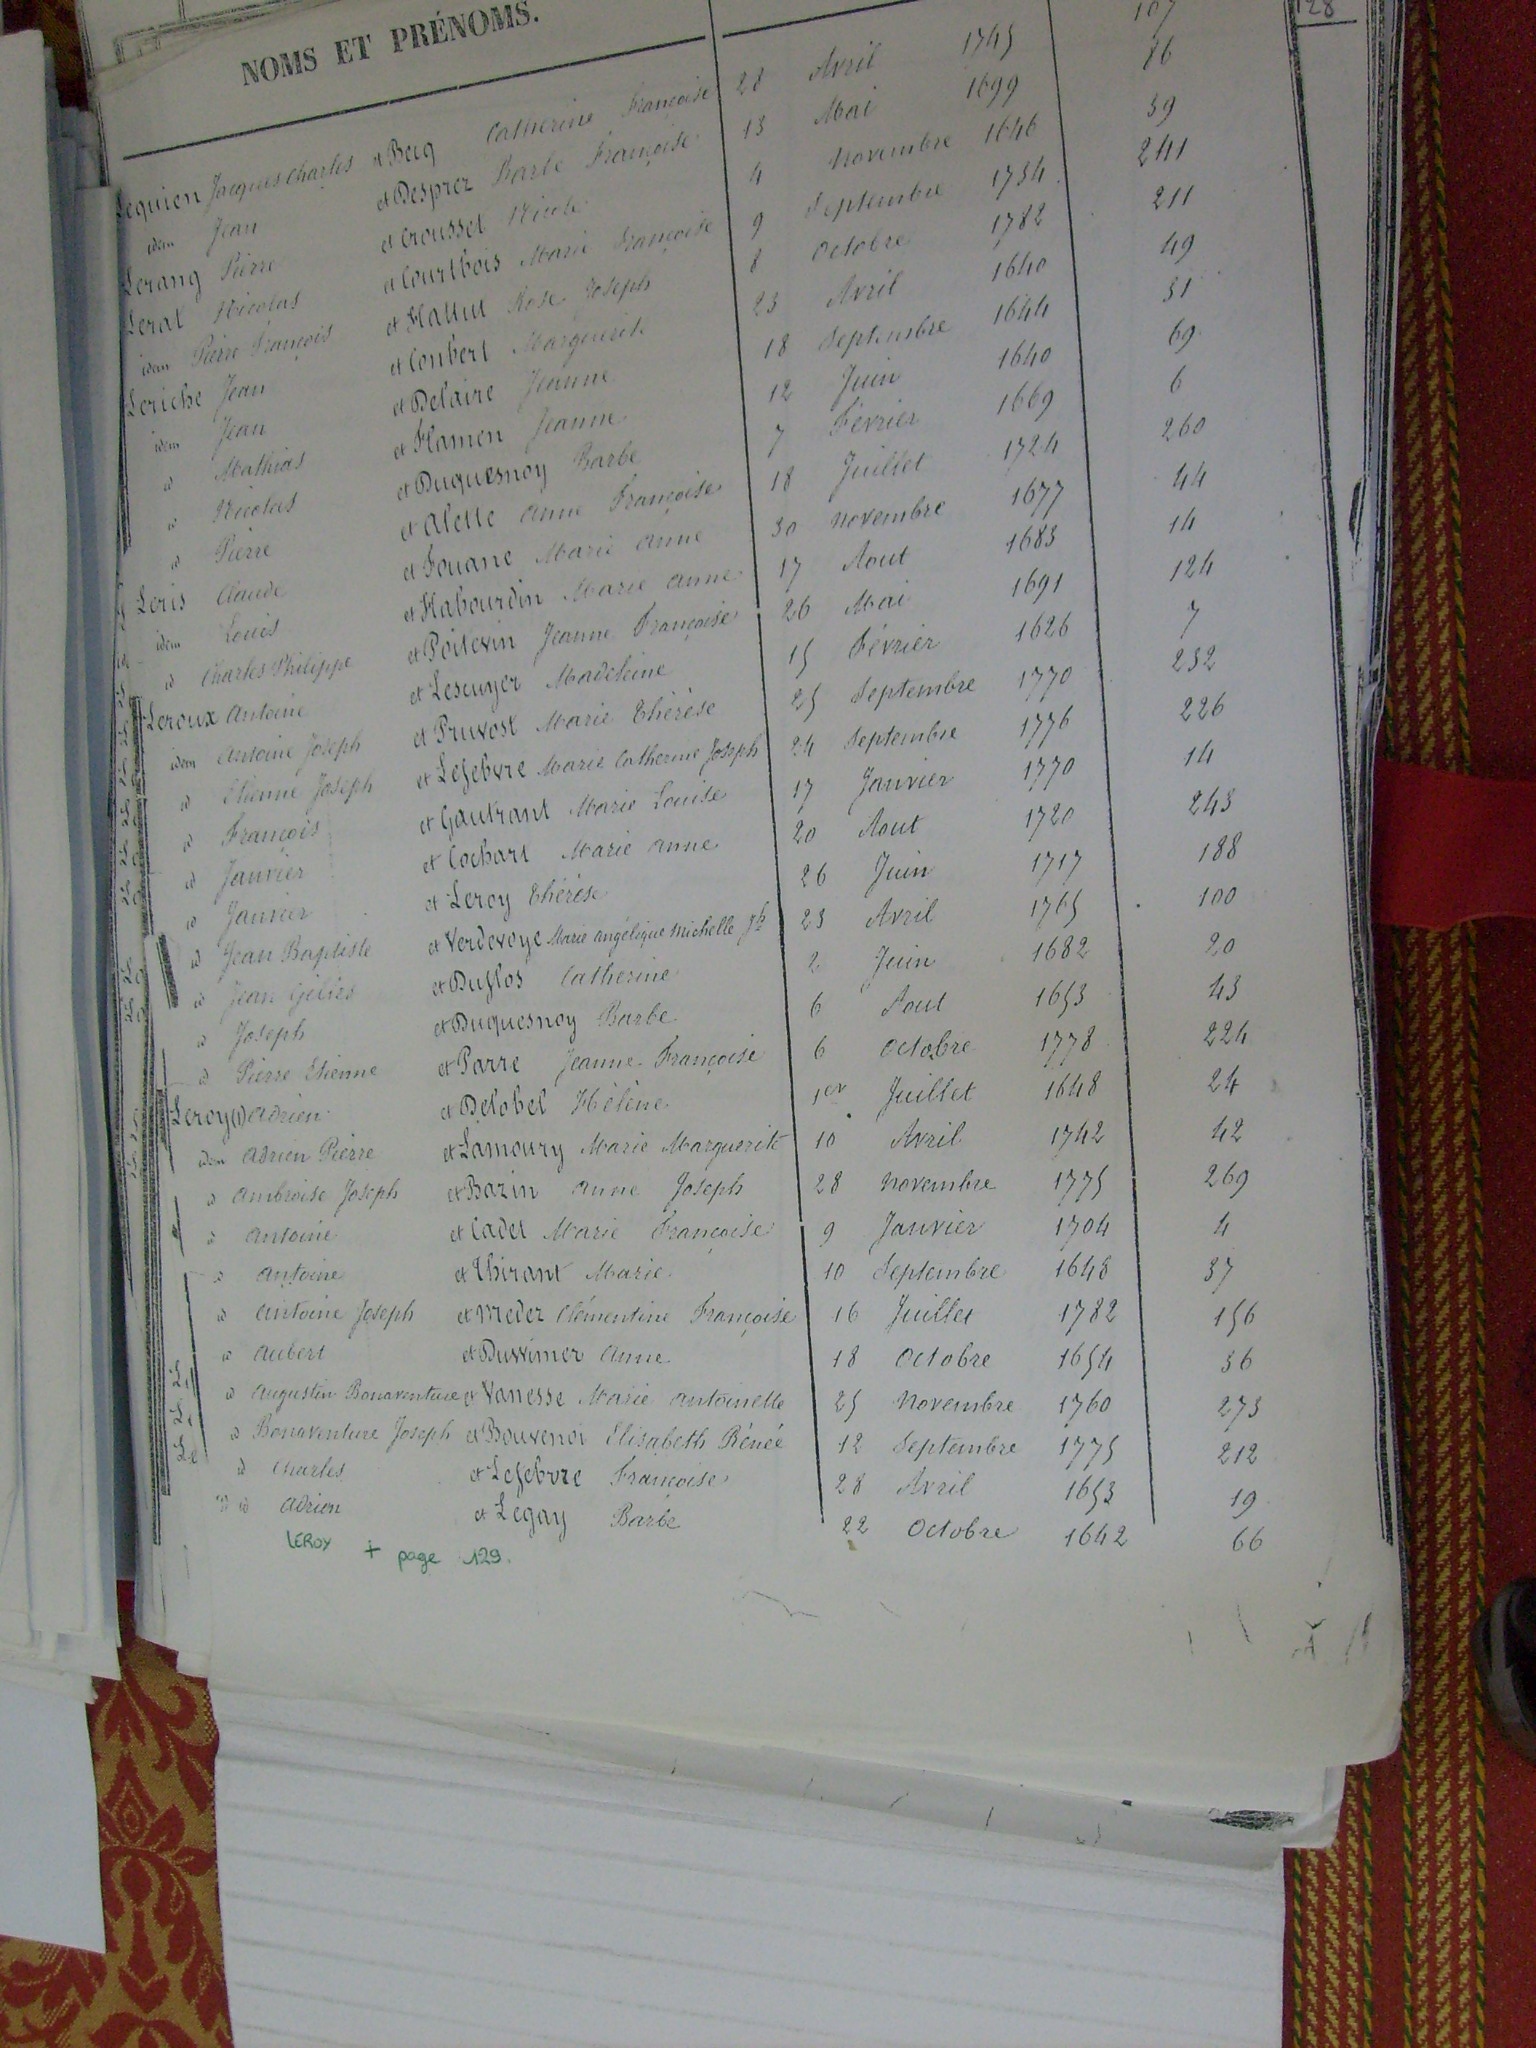 128
NOMS ET PRÉNOMS.
Lequien Jacques Charles et Becq Catherine Françoise 28 Avril 1745 107
idem Jean et Desprez Barbe Françoise 13 Mai 1699 86
Lerang Pierre et Crousset Nicole 4 Novembre 1646 39
Lerat Nicolas et Courtbois Marie Françoise 9 Septembre 1754 241
idem Pierre François et Hattut Rose Joseph 8 Octobre 1782 211
Leriche Jean et Conbert Marguerite 23 Avril 1640 49
idem Jean et Delaire Jeanne 18 Septembre 1644 51
id Mathias et Flamen Jeanne 12 Juin 1640 69
id Nicolas et Duquesnoy Barbe 7 Février 1669 6
id Pierre et Alette Anne Françoise 18 Juillet 1724 260
Leris Claude et Fouane Marie Anne 30 Novembre 1677 44
idem Louis et Habourdin Marie Anne 17 Aout 1683 14
id Charles Philippe et Poitevin Jeanne Françoise 26 Mai 1691 124
Leroux Antoine et Lescuyer Madeleine 15 Février 1626 7
idem Antoine Joseph et Pruvost Marie Thérèse 25 Septembre 1770 232
id Etienne Joseph et Lefebvre Marie Catherine Joseph 24 Septembre 1776 226
id François et Gautrant Marie Louise 17 Janvier 1770 14
id Janvier et Cochart Marie Anne 20 Aout 1720 243
id Janvier et Leroy Thérèse 26 Juin 1717 188
id Jean Baptiste et Verdevoye Marie Angélique Michelle Jh 23 Avril 1765 100
id Jean Gélies et Duflos Catherine 2 Juin 1682 20
id Joseph et Duquesnoy Barbe 6 Aout 1653 43
id Pierre Etienne et Parre Jeanne-Françoise 6 Octobre 1778 224
Leroy (1) Adrien et Delobel Hélène 1er Juillet 1648 24
idem Adrien Pierre et Lamoury Marie Marguerite 10 Avril 1742 42
id Ambroise Joseph et Bazin Anne Joseph 28 Novembre 1775 269
id Antoine et Cadet Marie Françoise 9 Janvier 1704 4
id Antoine et Thirant Marie 10 Septembre 1648 37
id Antoine Joseph et Medez Clémentine Françoise 16 Juillet 1782 156
id Aubert et Duvimer Anne 18 Octobre 1654 36
id Augustin Bonaventure et Vanesse Marie Antoinette 25 Novembre 1760 273
id Bonaventure Joseph et Bouvenoi Elisabeth Rénée 12 Septembre 1775 212
id Charles et Lefebvre Françoise 28 Avril 1653 19
id Adrien et Legay Barbe 22 Octobre 1642 66
LEROY + page 129.